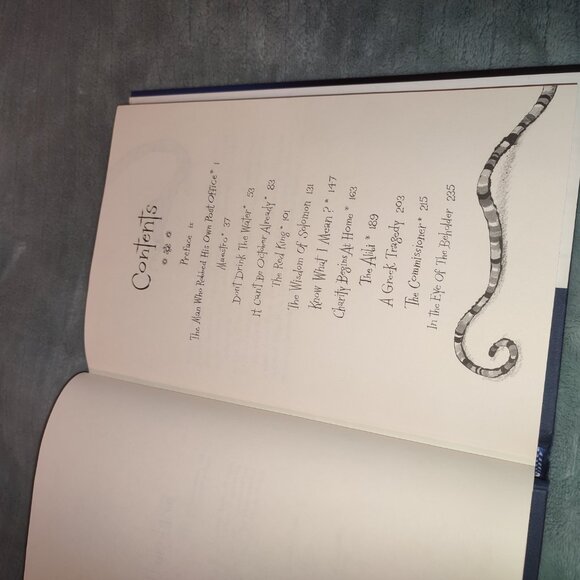 Contents
Preface ix
The Man Who Robbed His Own Post Office* 1
Maestro* 37
Don't Drink The Water* 53
It Can't Be October Already* 83
The Red King* 101
The Wisdom Of Solomon 131
Know What I Mean?* 147
Charity Begins At Home* 163
The Alibi* 189
A Greek Tragedy 203
The Commissioner* 215
In the Eye Of The Beholder 235